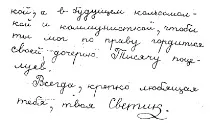 кой, а в будущем комсомол-
кой и коммунисткой, чтобы
ты мог по праву гордиться
своей дочерью. Тысячу поце-
луев.
Всегда, крепко любящая
тебя, твоя